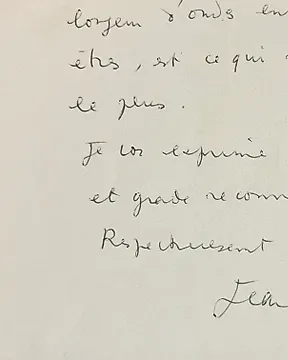 d'onds en
êtes, est ce qui
le plus.
Je vos exprime
et grade reconn
Respectueusement
Jean